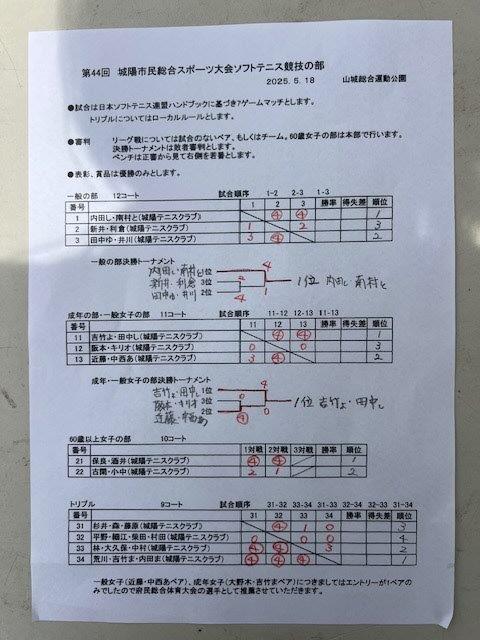 第44回 城陽市民総合スポーツ大会ソフトテニス競技の部
2025.5.18 山城総合運動公園
●試合は日本ソフトテニス連盟ハンドブックに基づき7ゲームマッチとします。
トリプルについてはローカルルールとします。
●審判 リーグ戦については試合のないペア、もしくはチーム。60歳女子の部は本部で行います。
決勝トーナメントは敗者審判とします。
ベンチは正審から見て右側を若番とします。
●表彰、賞品は優勝のみとします。
一般の部 12コート 試合順序 1-2 2-3 1-3
番号 1 2 3 勝率 得失差 順位
1 内田し・南村と(城陽テニスクラブ) ④ ④ 1
2 新井・利倉(城陽テニスクラブ) 1 2 3
3 田中ゆ・井川(城陽テニスクラブ) 3 ④ 2
一般の部決勝トーナメント 4
内田し・南村と 1位
新井・利倉 3位 2 1位 内田し 南村と
田中ゆ・井川 2位 4 1
成年の部・一般女子の部 11コート 試合順序 11-12 12-13 11-13
番号 11 12 13 勝率 得失差 順位
11 吉竹よ・田中し(城陽テニスクラブ) ④ ④ 1
12 阪本・キリオ(城陽テニスクラブ) 0 0 3
13 近藤・中西あ(城陽テニスクラブ) 3 ④ 2
成年・一般女子の部決勝トーナメント 4
吉竹よ・田中し 1位
阪本・キリオ 3位 0 1位 吉竹よ・田中し
近藤・中西あ 2位 ④ 0
60歳以上女子の部 10コート
番号 1対戦 2対戦 3対戦 勝率 得失差 順位
21 保良・酒井(城陽テニスクラブ) ④ ④ 1
22 古関・小中(城陽テニスクラブ) 2 1 2
トリプル 9コート 試合順序 31-32 33-34 31-33 32-34 32-33 31-34
番号 31 32 33 34 勝率 得失差 順位
31 杉井・森・藤原(城陽テニスクラブ) ④ 1 0 3
32 平野・細江・柴田・村田(城陽テニスクラブ) 0 0 0 4
33 林・大久保・中村(城陽テニスクラブ) ④ ④ 3 2
34 荒川・吉竹ま・内田ま(城陽テニスクラブ) ④ ④ ④ 1
一般女子(近藤・中西あペア)、成年女子(大野木・吉竹まペア)につきましてはエントリーが1ペアの
みでしたので府民総合体育大会の選手として推薦させていただきます。